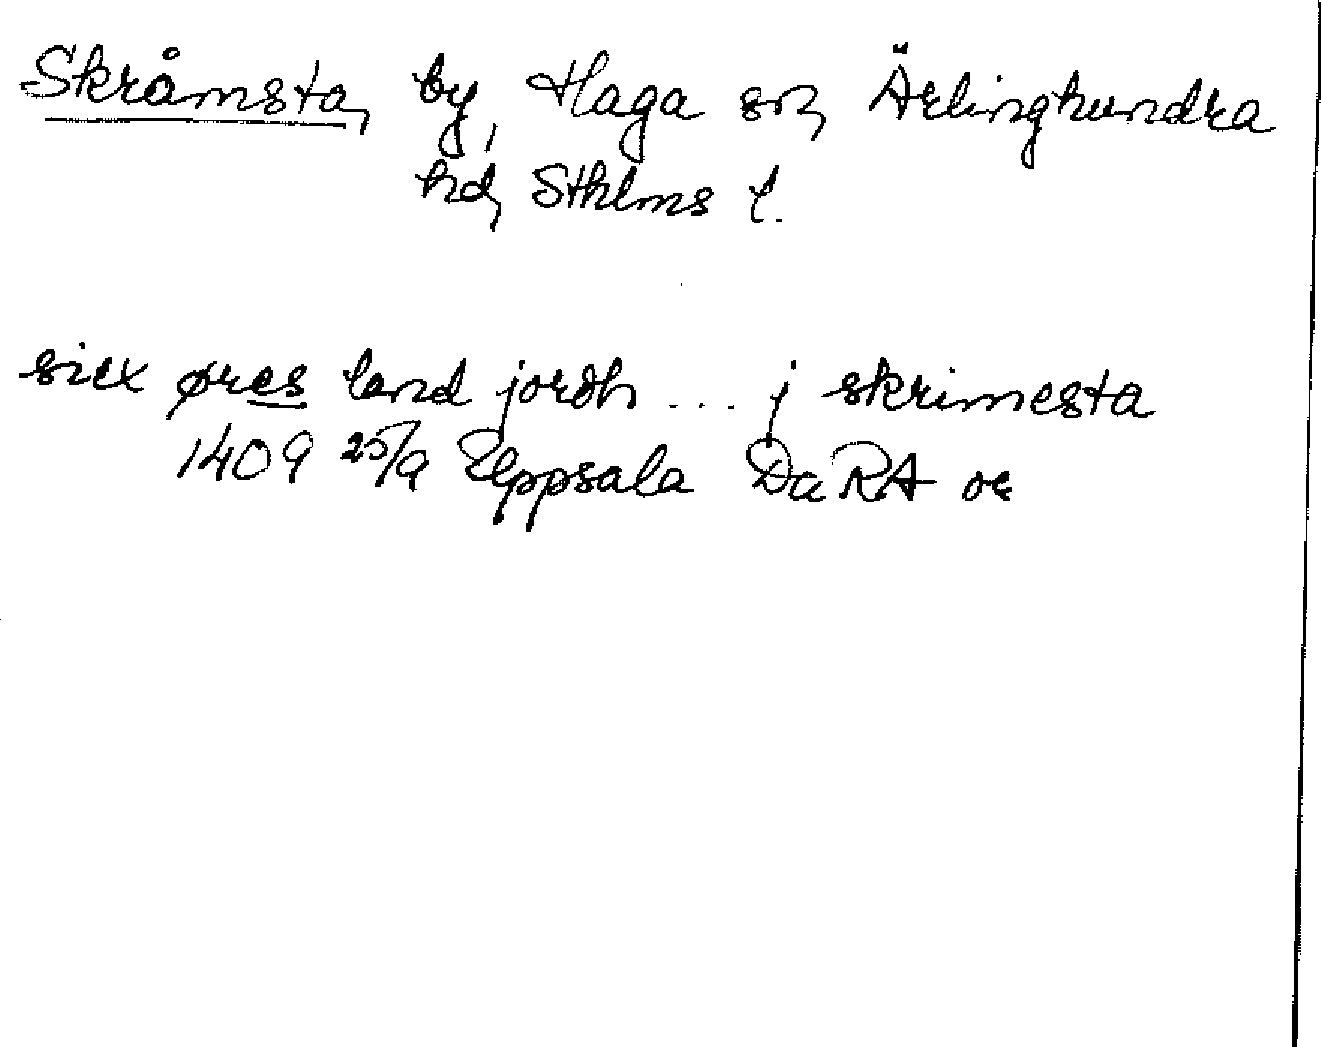 Skråmsta, by, Haga sn, Ärlinghundra
hd, Sthlms l.
siex øres land jordh ... j skrimesta
1409 25/9 Uppsala DaRA or